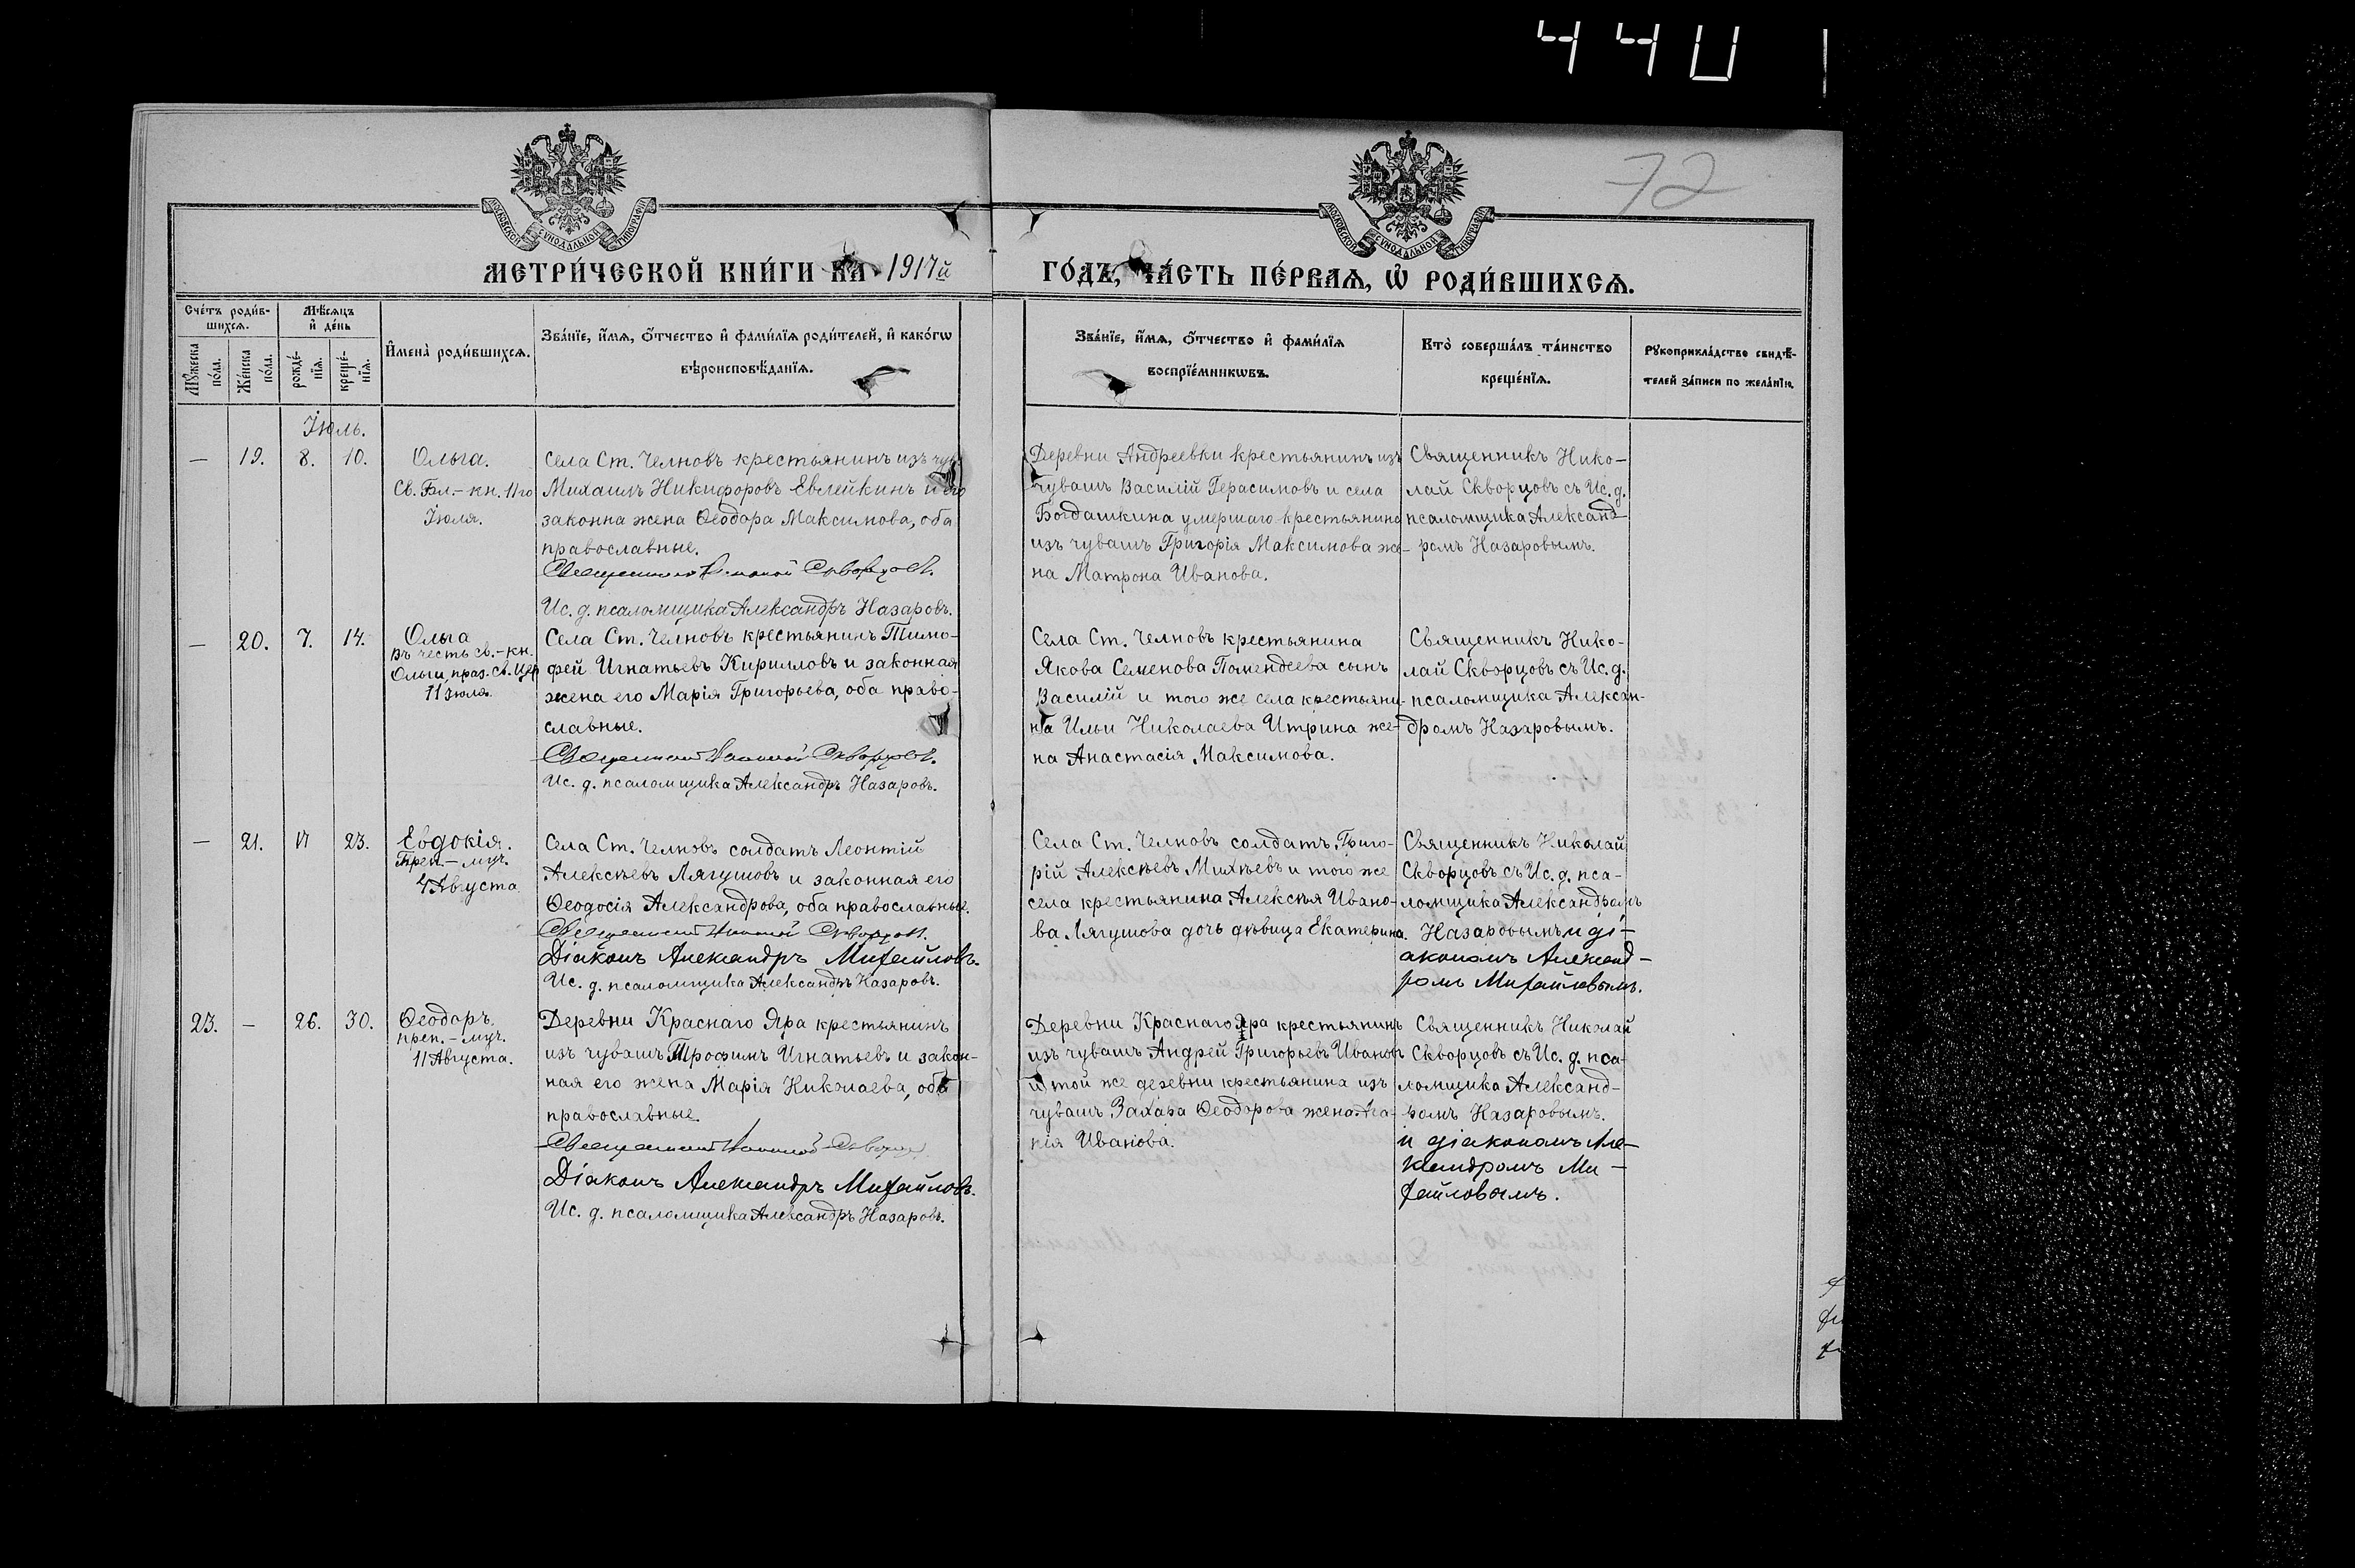 440
72
МОСКОВСКОЙ СѴНОДАЛЬНОЙ ТИПОГРАФІИ
МОСКОВСКОЙ СѴНОДАЛЬНОЙ ТИПОГРАФІИ
МЕТРИ́ЧЕСКОЙ КНИ́ГИ НА 1917й
ГО́ДЪ, ЧА́СТЬ ПЕ́РВАЯ, Ѡ҆ РОДИ́ВШИХСЯ.
Сче́тъ роди́в-
шихся.
Мѣ́сяцъ
и҆ де́нь
Мꙋ́жеска
по́ла.
Же́нска
по́ла.
рожде́-
нїя.
креще́-
нїя.
И҆мена̀ роди́вшихся.
Зва́нїе, и҆́мя, ѻ҆́тчество и҆ фами́лїя роди́телей, и҆ како́гѡ
вѣроисповѣ́данїя.
Зва́нїе, и҆́мя, ѻ҆́тчество и҆ фами́лїя
воспрїе́мникѡвъ.
Кто̀ соверша́лъ та́инство
креще́нїя.
Рꙋкоприкла́дство свидѣ́-
телей за́писи по жела́нїю.
Іюль.
— 19. 8. 10.
Ольга.
Св. Бл.-кн. 11го
Іюля.
Села Ст. Челновъ крестьянинъ изъ чув.
Михаилъ Никифоровъ Евлейкинъ и его
законна жена Ѳеодора Максимова, оба
православные.
Священникъ Николай Скворцовъ.
Ис. д. псаломщика Александръ Назаровъ.
Деревни Андреевки крестьянинъ изъ
чувашъ Василій Герасимовъ и села
Богдашкина умершаго крестьянина
изъ чувашъ Григорія Максимова же-
на Матрона Иванова.
Священникъ Нико-
лай Скворцовъ съ Ис. д.
псаломщика Александ-
ромъ Назаровымъ.
— 20. 7. 14.
Ольга
въ честь св.-кн.
Ольги, праз. Св. Цер
11 Іюля.
Села Ст. Челновъ крестьянинъ Тимо-
фей Игнатьевъ Кирилловъ и законная
жена его Марія Григорьева, оба право-
славные.
Священникъ Николай Скворцовъ.
Ис. д. псаломщика Александръ Назаровъ.
Села Ст. Челновъ крестьянина
Якова Семенова Помендеева сынъ
Василій и того же села крестьяни-
на Ильи Николаева Итрина же-
на Анастасія Максимова.
Священникъ Нико-
лай Скворцовъ съ Ис. д.
псаломщика Алексан-
дромъ Назаровымъ.
— 21. 23.
Евдокія.
Преп.-муч.
4 Августа.
Села Ст. Челновъ солдатъ Леонтій
Алексѣевъ Лягушовъ и законная его
Ѳеодосія Александрова, оба православные.
Священникъ Николай Скворцовъ.
Діаконъ Александръ Михайловъ.
Ис. д. псаломщика Александръ Назаровъ.
Села Ст. Челновъ солдатъ Григо-
рій Алексѣевъ Михѣевъ и того же
села крестьянина Алексѣя Ивано-
ва Лягушова дочь дѣвица Екатерина.
Священникъ Николай
Скворцовъ съ Ис. д. пса-
ломщика Александромъ
Назаровымъ и ді-
акономъ Александ-
ромъ Михайловымъ.
23. — 26. 30.
Ѳеодоръ,
преп.-муч.
11 Августа.
Деревни Краснаго Яра крестьянинъ
изъ чувашъ Трофимъ Игнатьевъ и закон-
ная его жена Марія Николаева, оба
православные.
Священникъ Николай Скворцовъ
Діаконъ Александръ Михайловъ.
Ис. д. псаломщика Александръ Назаровъ.
Деревни Краснаго Яра крестьянинъ
изъ чувашъ Андрей Григорьевъ Ивановъ
и той же деревни крестьянина изъ
чувашъ Захара Ѳеодорова жена Ага-
пія Иванова.
Священникъ Николай
Скворцовъ съ Ис. д. пса-
ломщика Александ-
ромъ Назаровымъ.
и діакономъ Але-
ксандромъ Ми-
хайловымъ.